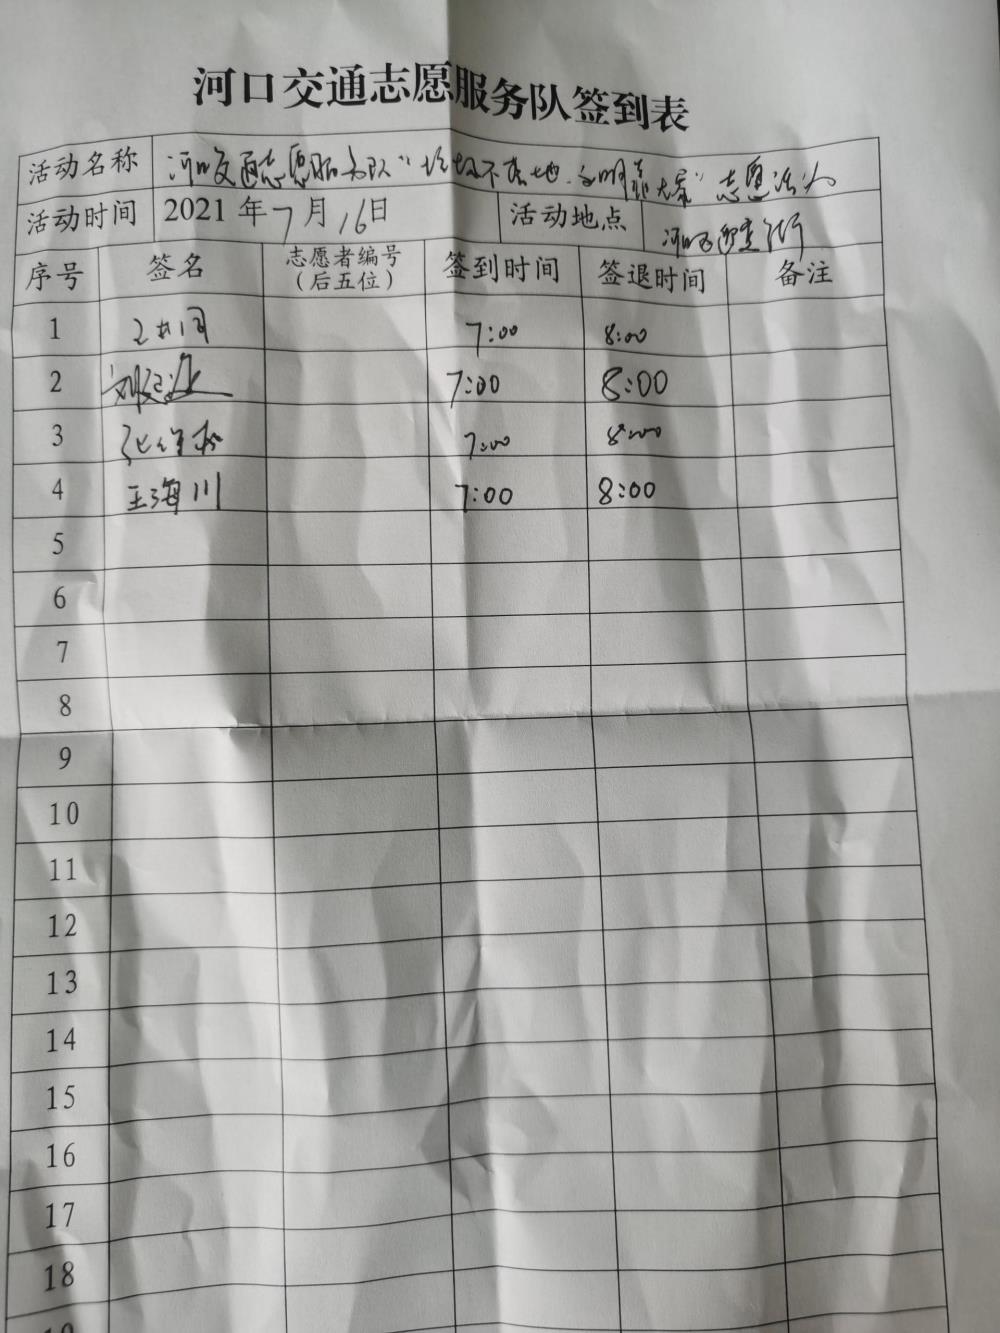 河口交通志愿服务队签到表
活动名称 河口交通志愿服务队"垃圾不落地·文明靠大家"志愿活动
活动时间 2021年7月16日 活动地点 河口区
序号 签名 志愿者编号（后五位） 签到时间 签退时间 备注
1 7:00 8:00
2 7:00 8:00
3 7:00 8:00
4 王海川 7:00 8:00
5
6
7
8
9
10
11
12
13
14
15
16
17
18
19